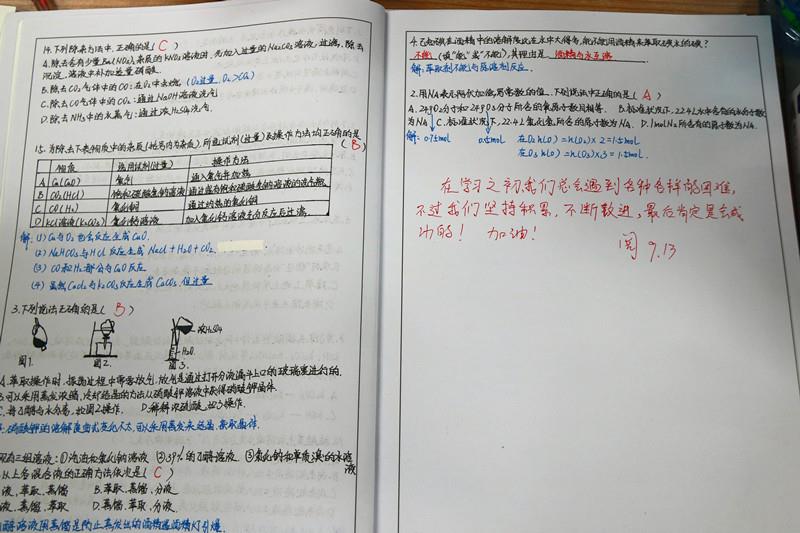 14.下列除杂方法中,正确的是( C )
A.除去含有少量Ba(NO₃)₂杂质的KNO₃溶液中,先加入过量的Na₂CO₃溶液,过滤,除去
沉淀,溶液中补加适量硝酸.
B.除去CO₂气体中的CO:在O₂中点燃.(O₂过量,
C.除去CO气体中的CO₂:通过NaOH溶液洗气
D.除去NH₃中的水蒸气:通过浓H₂SO₄洗气.
15.为除去下表物质中的杂质(括号内为杂质),所选试剂(过量)及操作方法均正确的是
( B )
物质 选用试剂(过量) 操作方法
A Cu(CuO) 氧气 通入氧气并加热
B CO₂(HCl) 饱和碳酸氢钠溶液
C CO(H₂) 氧化铜 通过灼热的氧化铜
D KCl溶液(K₂CO₃) 氯化钙溶液 加入氯化钙溶液充分反应后过滤.
解:(1) Cu与O₂也会反应生成CuO.
(2) NaHCO₃与HCl反应生成NaCl+H₂O+CO₂.
(3) CO和H₂都会与CuO反应
(4) 虽然CaCl₂与K₂CO₃反应生成CaCO₃,但过量
3.下列说法正确的是( B )
浓H₂SO₄
H₂O
图1. 图2. 图3.
A.萃取操作时,振荡过程中需要放气,放气是通过打开分液漏斗上口的玻璃塞进行的.
B.可以采用蒸发浓缩,冷却结晶的方法从硝酸钾溶液中获得硝酸钾晶体
C.将乙醇与水分离,如图2操作. D.稀释浓硫酸,如图3操作.
现有三组溶液:①汽油和氯化钠溶液 ②39%的乙醇溶液 ③氯化钠和单质溴的水溶液
以上各混合液的正确方法依次是( C )
液、萃取、蒸馏 B.萃取、蒸馏、分液
液、蒸馏、萃取 D.蒸馏、萃取、分液.
4.已知碘在酒精中的溶解度比在水中大得多,能不能用酒精来萃取碘水的碘?
不能(填"能"或"不能"),其理由是 酒精与水互溶
解:萃取剂不能与原溶剂反应.
2.用NA表示阿伏加德罗常数的值.下列说法正确的是( A )
A.24gO₂分子和24gO₃分子所含的氧原子数目相等. B.标准状况下,22.4L水中含有的水分子数
为NA C.标准状况下,22.4L氯化氢所含的原子数为NA. D.1molN₂所含有的原子数为NA.
解: 0.75mol 0.5mol 在O₂中n(O)=n(O₂)×2=1.5mol.
在O₃中n(O)=n(O₃)×3=1.5mol.
在学习之初我们总会遇到各种各样的困难,
不过我们坚持积累,不断改进,最后肯定是会成
功的! 加油!
阅 9.13